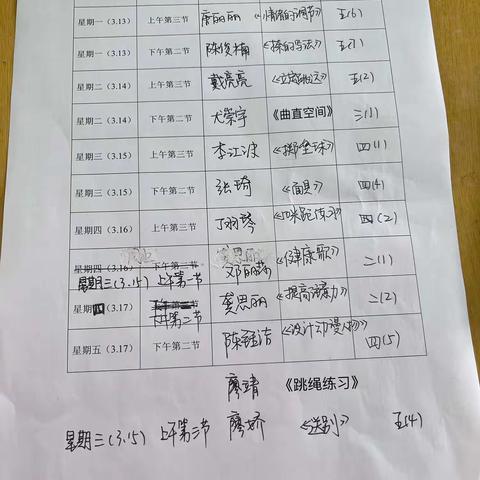 星期一（3.13） 上午第三节 唐丽丽 《情绪的调节》 五(6)
星期一（3.13） 下午第二节 陈俊楠 五(1)
星期二（3.14） 上午第三节 戴亮亮 《立定跳远》 五(2)
星期二（3.14） 下午第二节 犬荣宇 《曲直空间》 三(1)
星期三（3.15） 上午第三节 李江波 《掷垒球》 四(1)
星期三（3.15） 下午第二节 张琦 《面具》 四(4)
星期四（3.16） 上午第三节 丁羽琴 四(2)
星期四（3.16） 下午第二节
星期三(3.15) 上午第一节 邓丽莎 《健康歌》 二(1)
星期四（3.17） 下午第二节 龚思丽 二(2)
星期五（3.17） 下午第二节 陈钰洁 《设计动漫人物》 四(5)
廖靖 《跳绳练习》
星期三(3.15) 上午第三节 廖娇 《送别》 五(4)